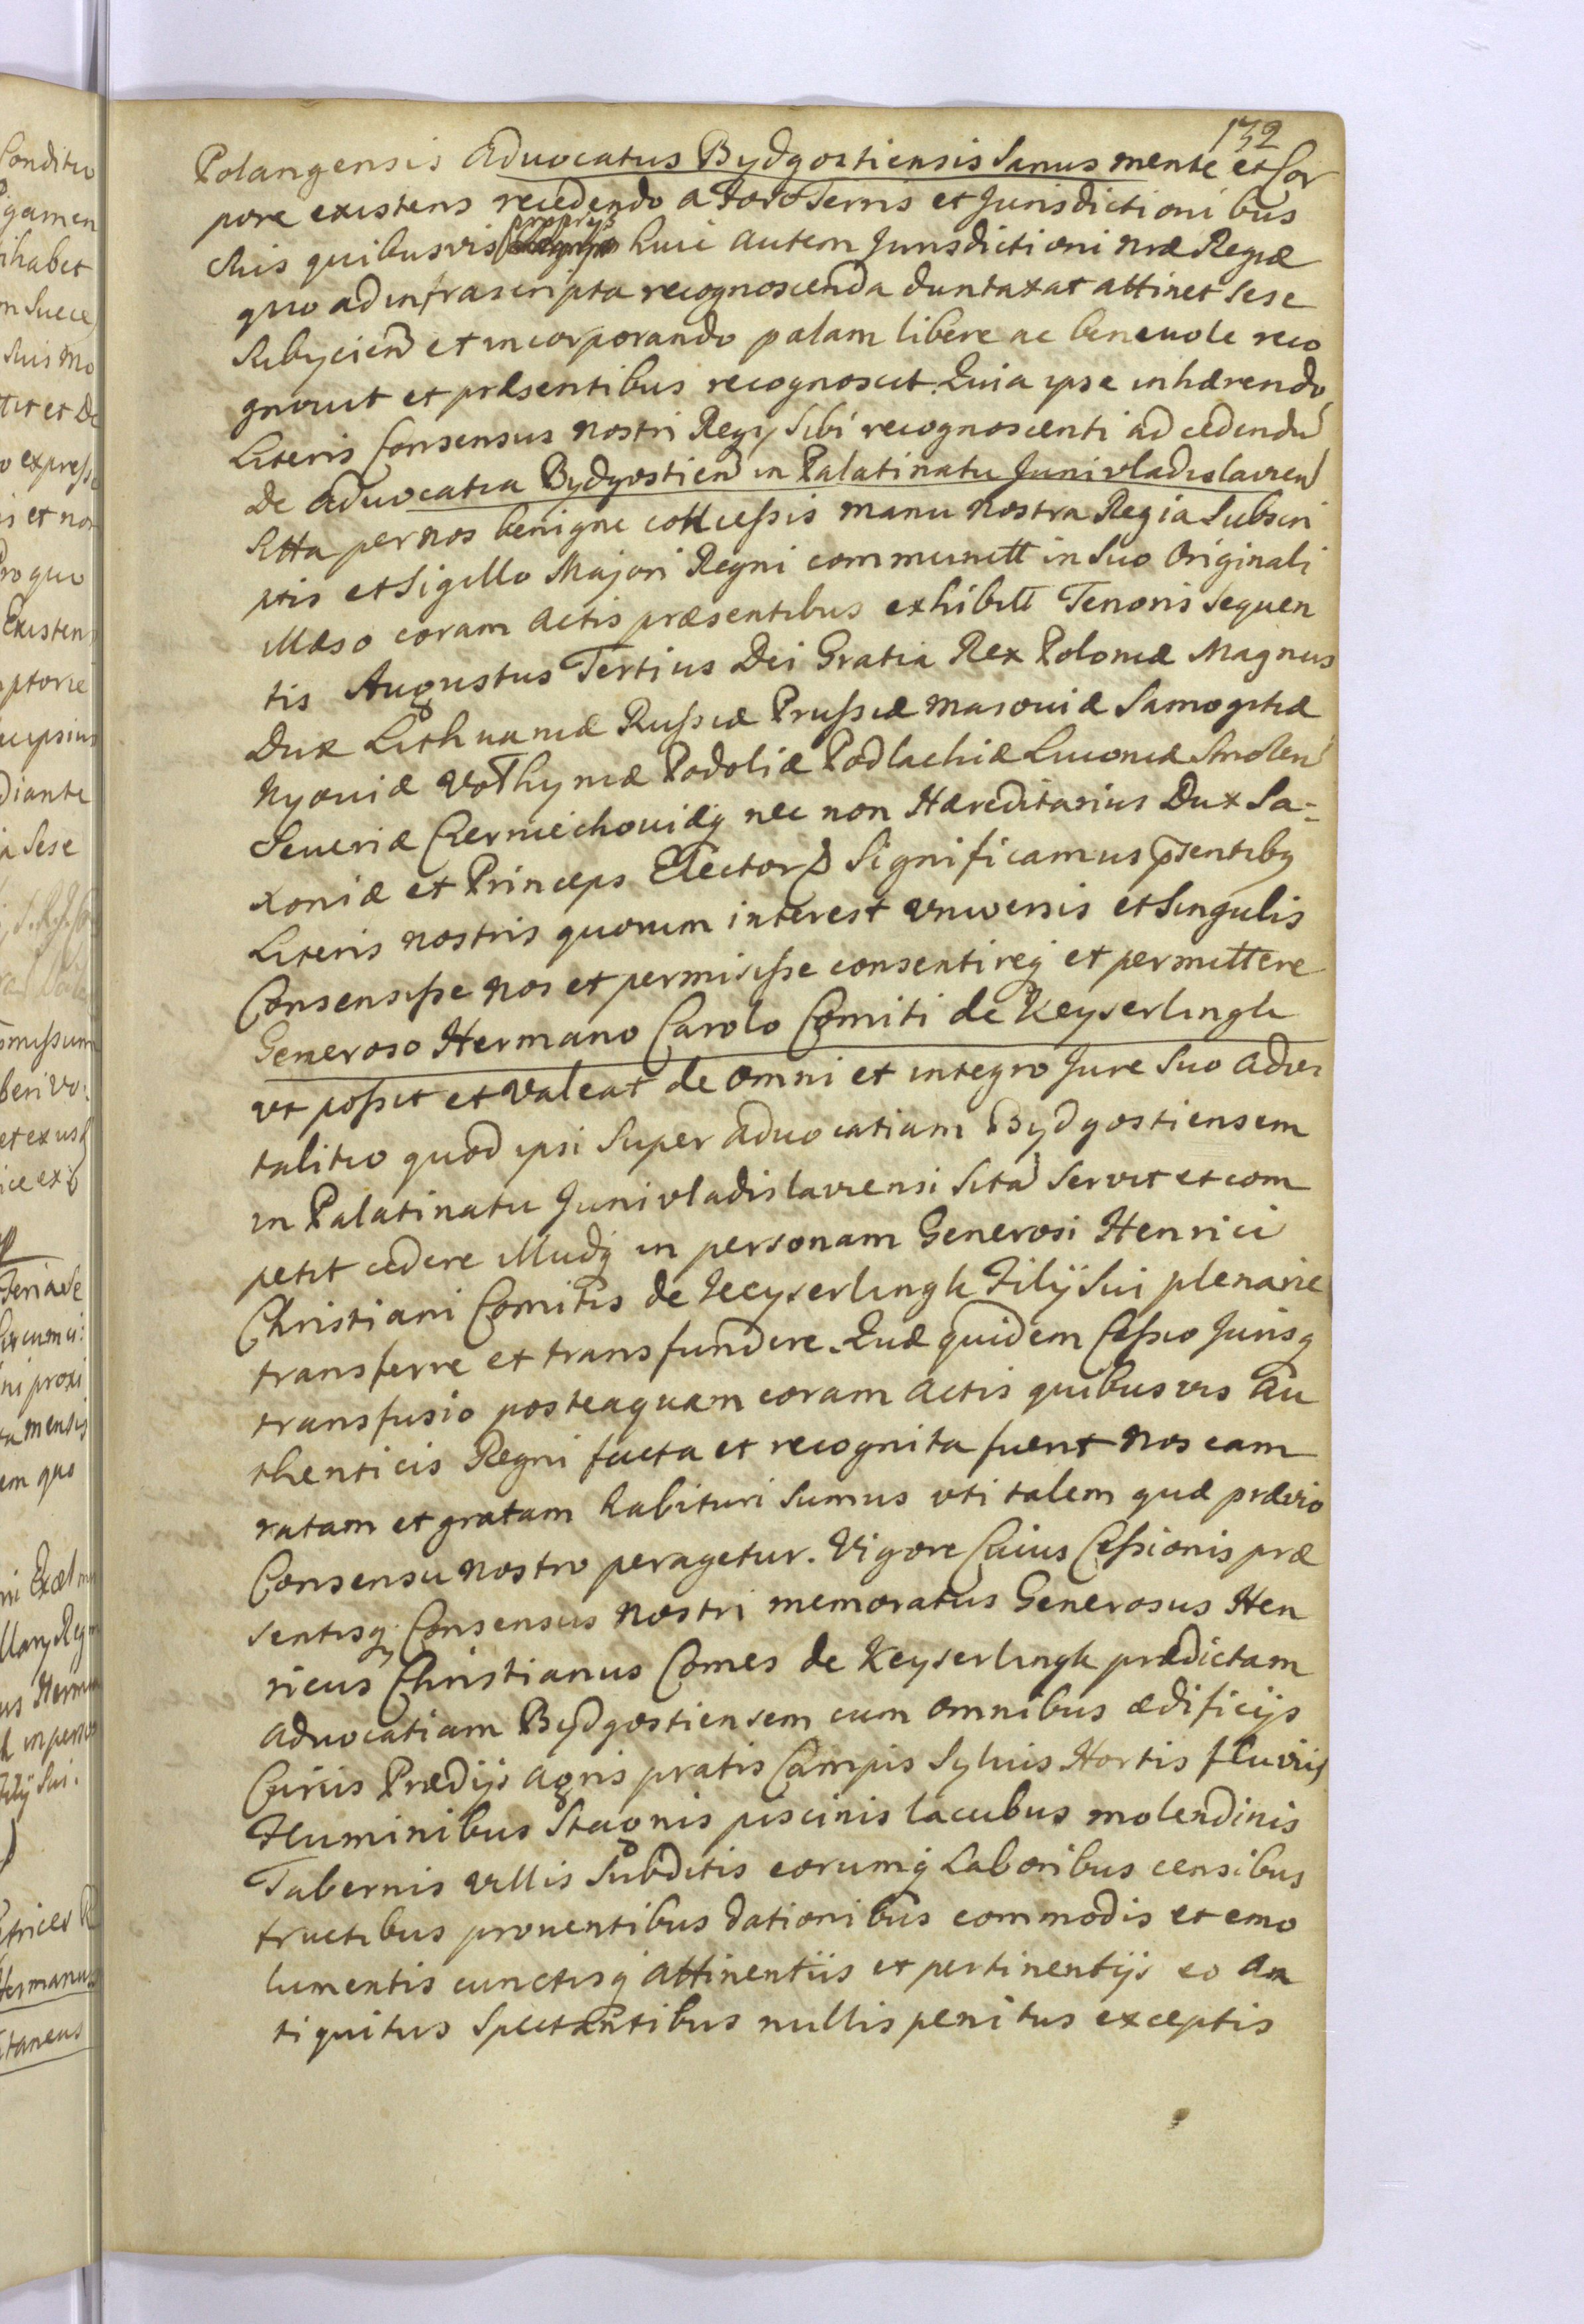 132
Polangensis Advocatus Bydgostiensis Sanus mente et Cor
pore existens recedendo a Foro Terris et Jurisdictioni bus
suis quibusvis proprijs huic autem Jurisdictioni nræ Regiæ
quo ad infrascripta recognoscenda duntaxat attinet sese
Subyciend et incorporando palam libere ac benevole reco
gnovit et præsentibus recognoscit. Quia ipse inhærendo
Literis Consensus nostri Regij sibi recognoscenti ad cedendu
De Advocatia Bydgostien in Palatinatu Junivladislavien
sitta per nos benigne concessis manu nostra Regia Subscri
ptis et Sigillo Majori Regni communitt in suo Originali
illæso coram actis præsentibus exhibitt Tenoris sequen
tis Augustus Tertius Dei Gratia Rex Poloniæ Magnus
Dux Lithuaniæ Russiæ Prussiæ Masoviæ Samogitiæ
Kyoviæ Volhyniæ Podoliæ Podlachiæ Livoniæ Smolen
Severiæ Czerniechoviæq nec non Hæreditarius Dux Sa-
xoniæ et Princeps Elector Significamus psentibq
Literis nostris quorum interest vniversis et singulis
Consensisse nos et permisisse consentireq et permittere
Generoso Hermano Carolo Comiti de Keyserlingk
vt possit et valeat de omni et integro Jure suo advi
talitio quod ipsi super advocatiam Bydgostiensem
in Palatinatu Junivladislaviensi sita servit et com
petit cedere illudq in personam Generosi Henrici
Christiani Comitis de Keyserlingk Filij sui plenarie
transferre et transfundere. Quæ quidem Cessio Jurisq
transfusio posteaquam coram actis quibusvis au
thenticis Regni facta et recognita fuerit nos eam
ratam et gratam habituri sumus vti talem quæ prævio
Consensu nostro peragetur. Vigore Cuius Cessionis præ
sentisq Consensus nostri memoratus Generosus Hen
ricus Christianus Comes de Keyserlingk prædictam
advocatiam Bydgostiensem cum omnibus ædificijs
Curiis Prædijs agris pratis Campis Sylvis Hortis fluviis
Fluminibus Stagnis piscinis lacubus molendinis
Tabernis villis Subditis eorumq Laboribus censibus
fructibus proventibus dationibus commodis et emo
lumentis cunctisq attinentiis et pertinentijs eo an
tiquitus Spectantibus nullis penitus exceptis